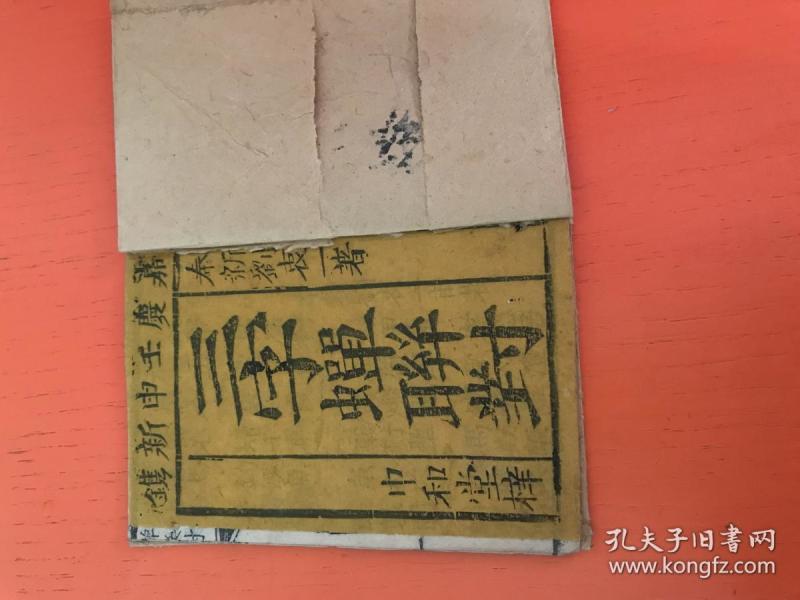 嘉慶壬申新鐫
奉新劉衷一著
三字蟬聯對
中和堂梓
孔夫子旧书网
www.kongfz.com